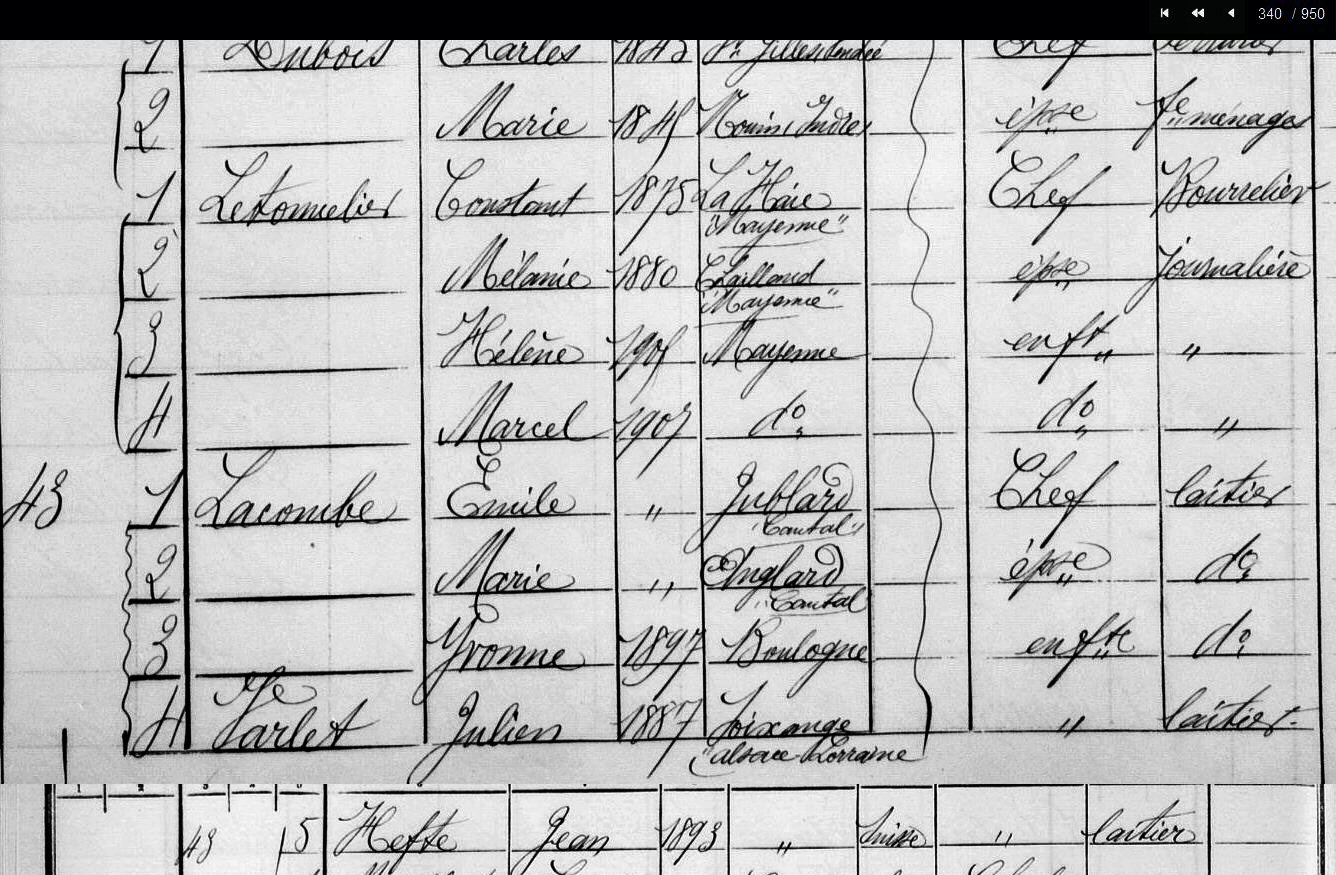 340 / 950
1 Dubois Charles 1843 St Gilles Indre Chef
2 Marie 1845 Mouins Indre épse fe ménages
1 Letonnelier Constant 1875 La Haie "Mayenne" Chef Bourrelier
2 Mélanie 1880 Chailland "Mayenne" épse journalière
3 Hélène 1905 Mayenne enft "
4 Marcel 1907 do do "
43 1 Lacombe Emile " Jublard "Cantal" Chef laitier
2 Marie " Anglard "Cantal épse do
3 Yvonne 1897 Boulogne enfte do
4 Tarlet Julien 1887 Foixange "alsace-Lorraine " laitier
43 5 Hefte Jean 1893 " Suisse " laitier